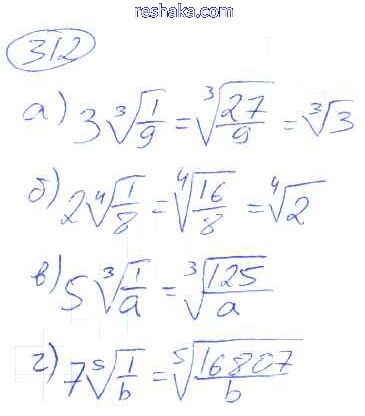 reshaka.com
312
а) 3∛(1/9) = ∛(27/9) = ∛3
б) 2∜(1/8) = ∜(16/8) = ∜2
в) 5∛(1/a) = ∛(125/a)
г) 7⁵√(1/b) = ⁵√(16807/b)